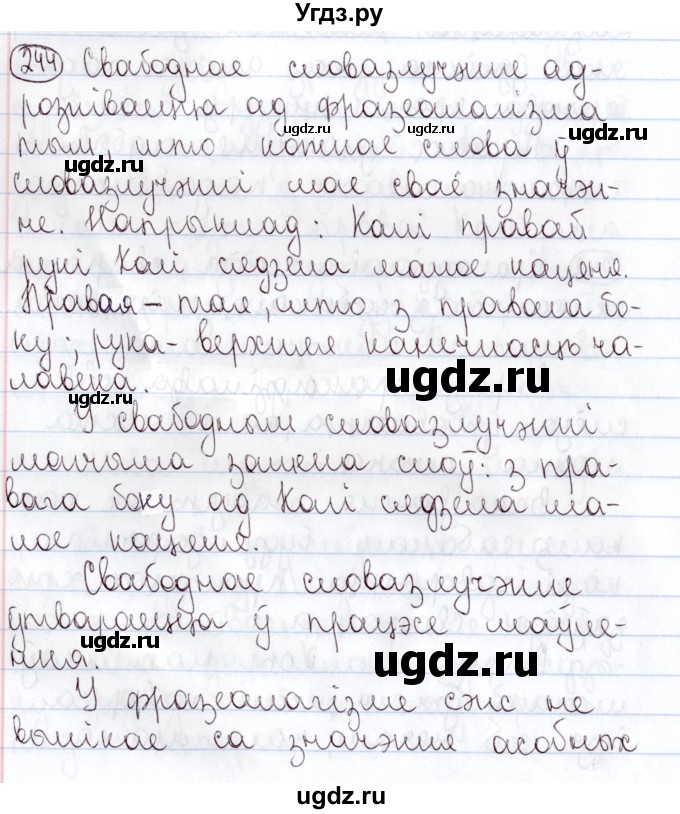 Угдз.ру
244 Свабоднае словазлучэнне ад-
розніваецца ад фразеалагізма
тым, што кожнае слова ў
словазлучэнні мае сваё значэн-
не. Напрыклад: Каля правай
рукі Колі сядзела малое кацяня.
Правая – тая, што з правага бо-
ку; рука - верхняя канечнасць ча-
лавека.
У свабодным словазлучэнні
магчыма замена слоў: з пра-
вага боку ад Колі сядзела ма-
лое кацяня.
Свабоднае словазлучэнне
утвараецца ў працэсе маўле-
ння.
У фразеалагізме сэнс не
вынікае са значэння асобных
ugdz.ru
ugdz.ru
ugdz.ru
ugdz.ru
ugdz.ru
ugdz.ru
ugdz.ru
ugdz.ru
ugdz.ru